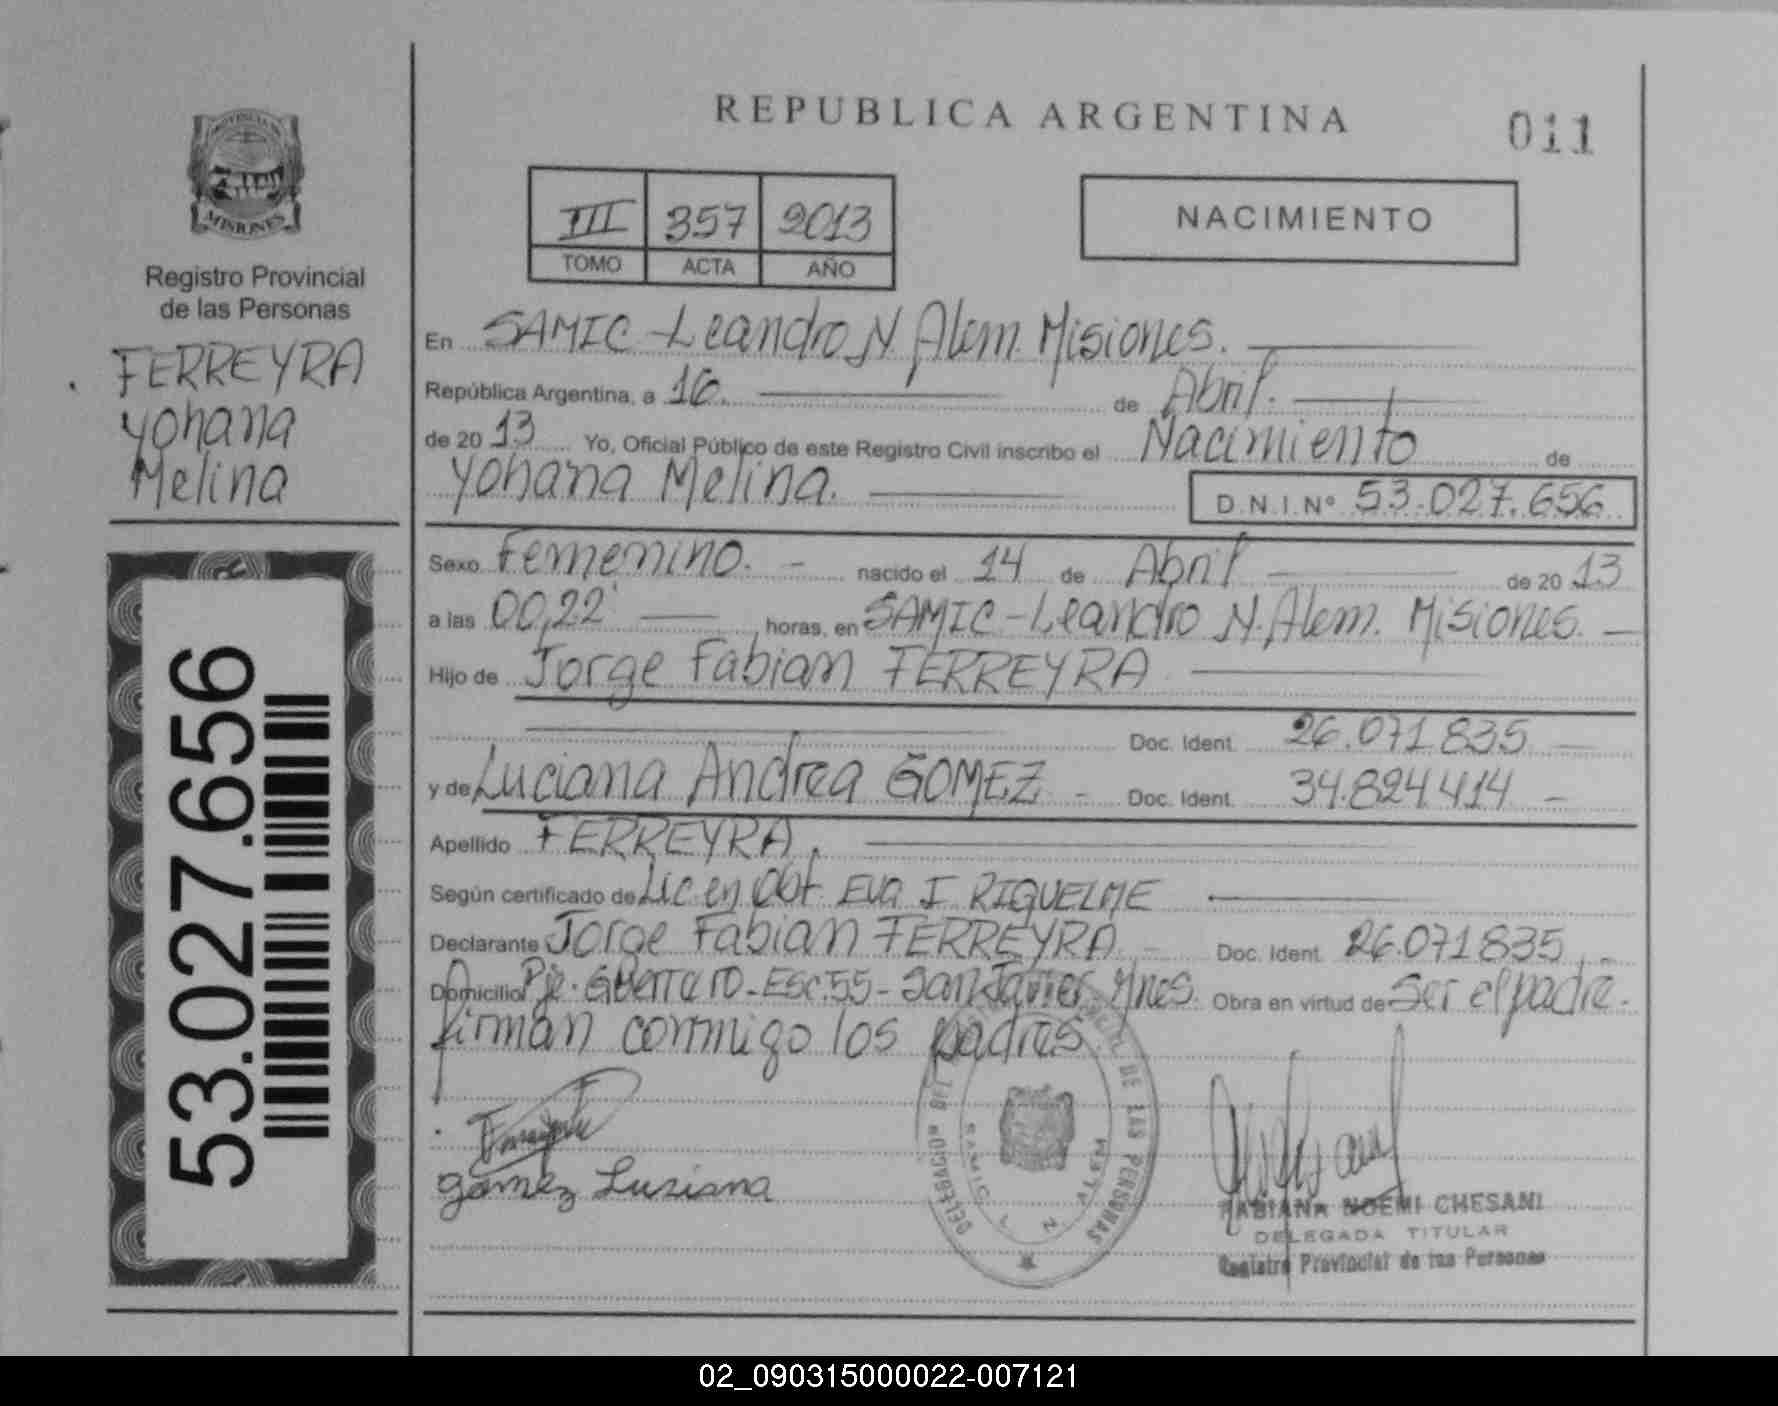 REPUBLICA ARGENTINA
011
PROVINCIA DE
MISIONES
Registro Provincial
de las Personas
FERREYRA
Yohana
Melina
III 357 2013
TOMO ACTA AÑO
NACIMIENTO
En SAMIC - Leandro N. Alem. Misiones.
República Argentina, a 16. de Abril.
de 20 13 Yo, Oficial Público de este Registro Civil inscribo el Nacimiento de
Yohana Melina. D.N.I. Nº 53.027.656
Sexo Femenino. - nacido el 14 de Abril de 20 13
a las 00,22' horas, en SAMIC - Leandro N. Alem. Misiones. -
Hijo de Jorge Fabian FERREYRA
Doc. Ident. 26.071.835 -
y de Luciana Andrea GOMEZ - Doc. Ident. 34.824.414 -
Apellido FERREYRA.
Según certificado de Lic. en Obt. Eva I RIQUELME
Declarante Jorge Fabian FERREYRA. - Doc. Ident. 26.071835. -
Domicilio Pje. Guerrero - Esc. 55 - San Javier. Mnes. Obra en virtud de Ser el padre.
firman conmigo los padres
gómez Lusiana
DELEGACIÓN DEL PROVINCIAL DE LAS PERSONAS
SAMIC L N ALEM
FABIANA NOEMI CHESANI
DELEGADA TITULAR
Registro Provincial de las Personas
53.027.656
02_090315000022-007121